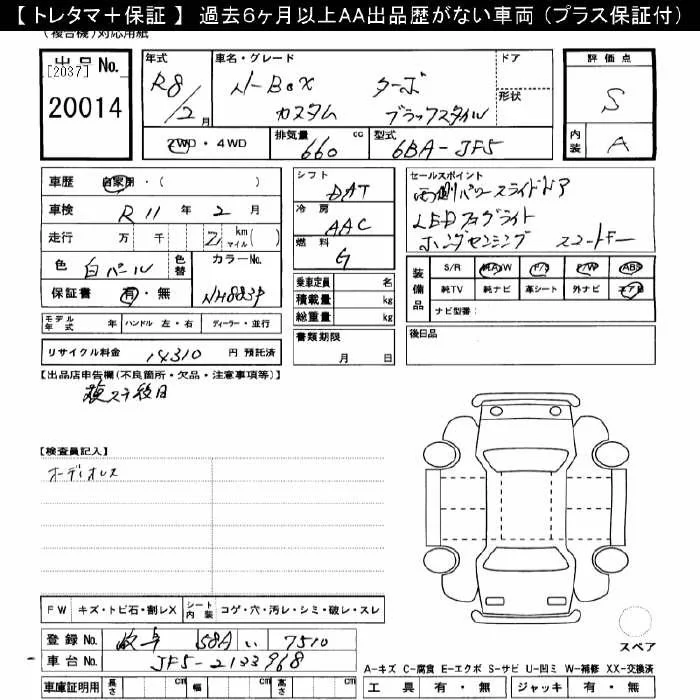 【トレタマ＋保証】 過去6ヶ月以上AA出品歴がない車両（プラス保証付）
（複合機）対応用紙
出品No.
[2037]
20014
年式
R8/2月
車名・グレード
N-Box ターボ
カスタム ブラックスタイル
ドア
形状
評価点
S
内装
A
2WD・4WD
排気量 660 cc
型式 6BA-JF5
車歴 自家用・( )
車検 R 11 年 2 月
走行 万 千 2 km マイル ( )
色 白パール
色替
カラーNo.
NH883P
保証書 有・無
シフト
DAT
冷房
AAC
燃料
G
乗車定員 名
積載量 kg
総重量 kg
セールスポイント
両側パワースライドドア
LEDフォグライト
ホンダセンシング スマートキー
装備品
S/R (A)W P/S P/W ABS
純TV 純ナビ 革シート 外ナビ エアB
ナビ型番:
モデル年式 年 ハンドル 左・右 ディーラー・並行
書類期限
月 日
後日品
リサイクル料金 14310 円 預託済
【出品店申告欄(不良箇所・欠品・注意事項等)】
【検査員記入】
オーディオレス
FW キズ・トビ石・割レX シート内装 コゲ・穴・汚レ・シミ・破レ・スレ
登録No. 岐阜 581A い 7510
車台No. JF5-2133968
車庫証明用 長さ cm 幅 cm 高さ cm
スペア
A-キズ C-腐食 E-エクボ S-サビ U-凹ミ W-補修 XX-交換済
工具 有・無 ジャッキ 有・無